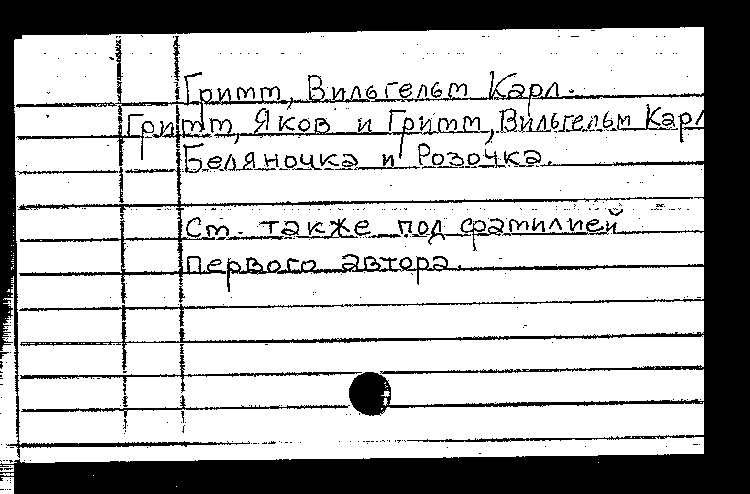 Гримм, Вильгельм Карл.
Гримм, Яков и Гримм, Вильгельм Карл
Беляночка и Розочка.
См. также под фамилией
первого автора.